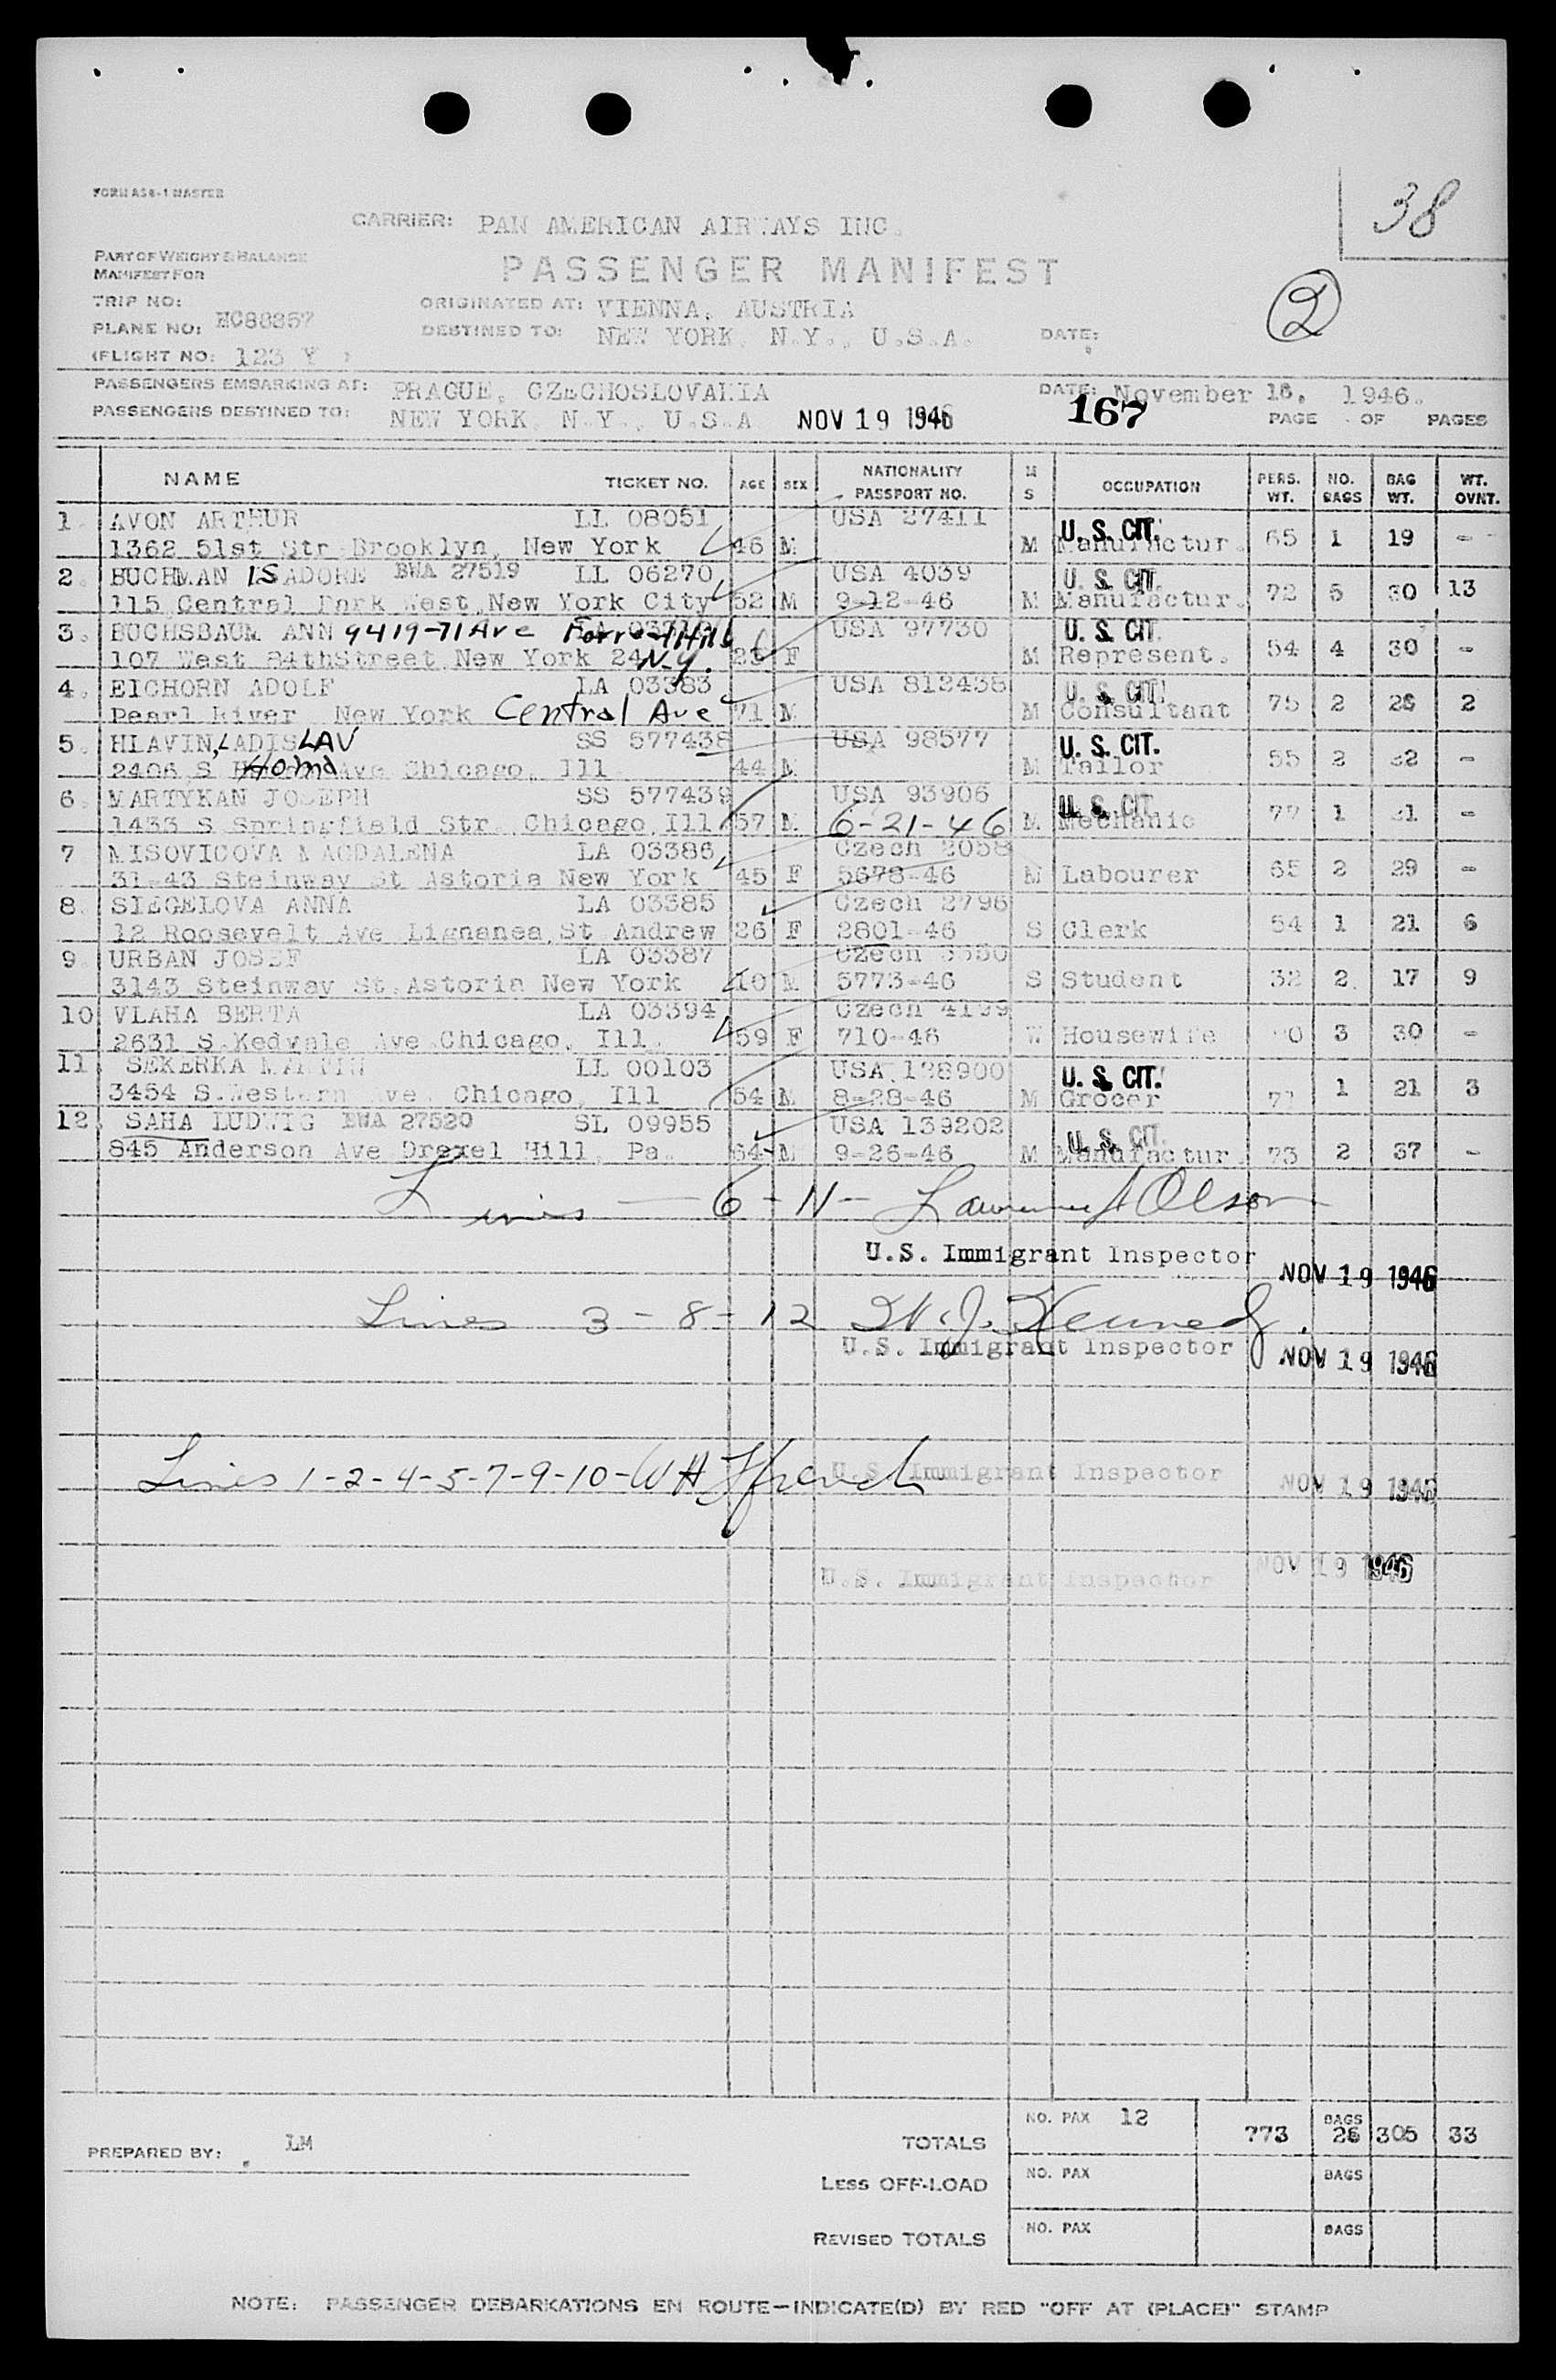 FORM AS8-1 MASTER
38
CARRIER: PAN AMERICAN AIRWAYS INC.
PART OF WEIGHT & BALANCE
MANIFEST FOR
PASSENGER MANIFEST
2
TRIP NO:
ORIGINATED AT: VIENNA, AUSTRIA
PLANE NO: NC88857
DESTINED TO: NEW YORK, N.Y., U.S.A.
DATE:
(FLIGHT NO: 123 Y )
PASSENGERS EMBARKING AT: PRAGUE, CZECHOSLOVAKIA
DATE: November 18, 1946.
PASSENGERS DESTINED TO: NEW YORK, N.Y., U.S.A NOV 19 1946 167 PAGE OF PAGES
NAME TICKET NO. AGE SEX NATIONALITY PASSPORT NO. M S OCCUPATION PERS. WT. NO. BAGS BAG WT. WT. OVNT.
1. AVON ARTHUR LL 08051 USA 27411 U.S. CIT.
1362 51st Str Brooklyn, New York 46 M M Manufactur. 65 1 19 -
2. BUCHMAN ISADORE BWA 27519 LL 06270 USA 4039 U.S. CIT.
115 Central Park West New York City 52 M 9-12-46 M Manufactur. 72 5 30 13
3. BUCHSBAUM ANN 9419-71 Ave Forrest Hills USA 97730 U.S. CIT.
107 West 84thStreet New York 24 N.Y. F M Represent. 54 4 30 -
4. EICHORN ADOLF LA 03383 USA 812438 U.S. CIT.
Pearl River New York Central Ave 71 M M Consultant 75 2 26 2
5. HLAVIN, LADISLAV SS 577438 USA 98577 U.S. CIT.
2406 S Homa Ave Chicago, Ill 44 M M Tailor 55 2 -
6. MARTYKAN JOSEPH SS 577439 USA 93906 U.S. CIT.
1433 S Springfield Str. Chicago Ill 57 M 6-21-46 M Mechanic 77 1 -
7 MISOVICOVA MAGDALENA LA 03386 Czech 2058
31-43 Steinway St Astoria New York 45 F 5678-46 M Labourer 65 2 29 -
8. SIEGELOVA ANNA LA 03385 Czech 2796
12 Roosevelt Ave Lignanea, St Andrew 26 F 2801-46 S Clerk 54 1 21 6
9. URBAN JOSEF LA 03387 Czech
3143 Steinway St. Astoria New York 10 M 5773-46 S Student 32 2. 17 9
10 VLAHA BERTA LA 03394 Czech 4199
2631 S.Kedvale Ave Chicago, Ill. 59 F 710-46 W Housewife 3 30 -
11. SEKERKA MARTIN LL 00103 USA 128900 U.S. CIT.
3454 S.Western Ave. Chicago, Ill 54 M 8-28-46 M Grocer 1 21 3
12. SAHA LUDWIG BWA 27520 SL 09955 USA 139202 U.S. CIT.
845 Anderson Ave Drexel Hill, Pa. 64 M 9-26-46 M Manufactur. 73 2 37 -
Lines — 6 - 11 - Lawrence A Olson
U.S. Immigrant Inspector NOV 19 1946
Lines 3 - 8 - 12 W.J. Kennedy.
U.S. Immigrant Inspector NOV 19 1946
Lines 1-2-4-5-7-9-10- W H French U.S. Immigrant Inspector NOV 19 1946
U.S. Immigrant Inspector NOV 19 1946
PREPARED BY: LM
TOTALS NO. PAX 12 773 BAGS 26 305 33
LESS OFF-LOAD NO. PAX BAGS
REVISED TOTALS NO. PAX BAGS
NOTE: PASSENGER DEBARKATIONS EN ROUTE—INDICATE(D) BY RED "OFF AT (PLACE)" STAMP